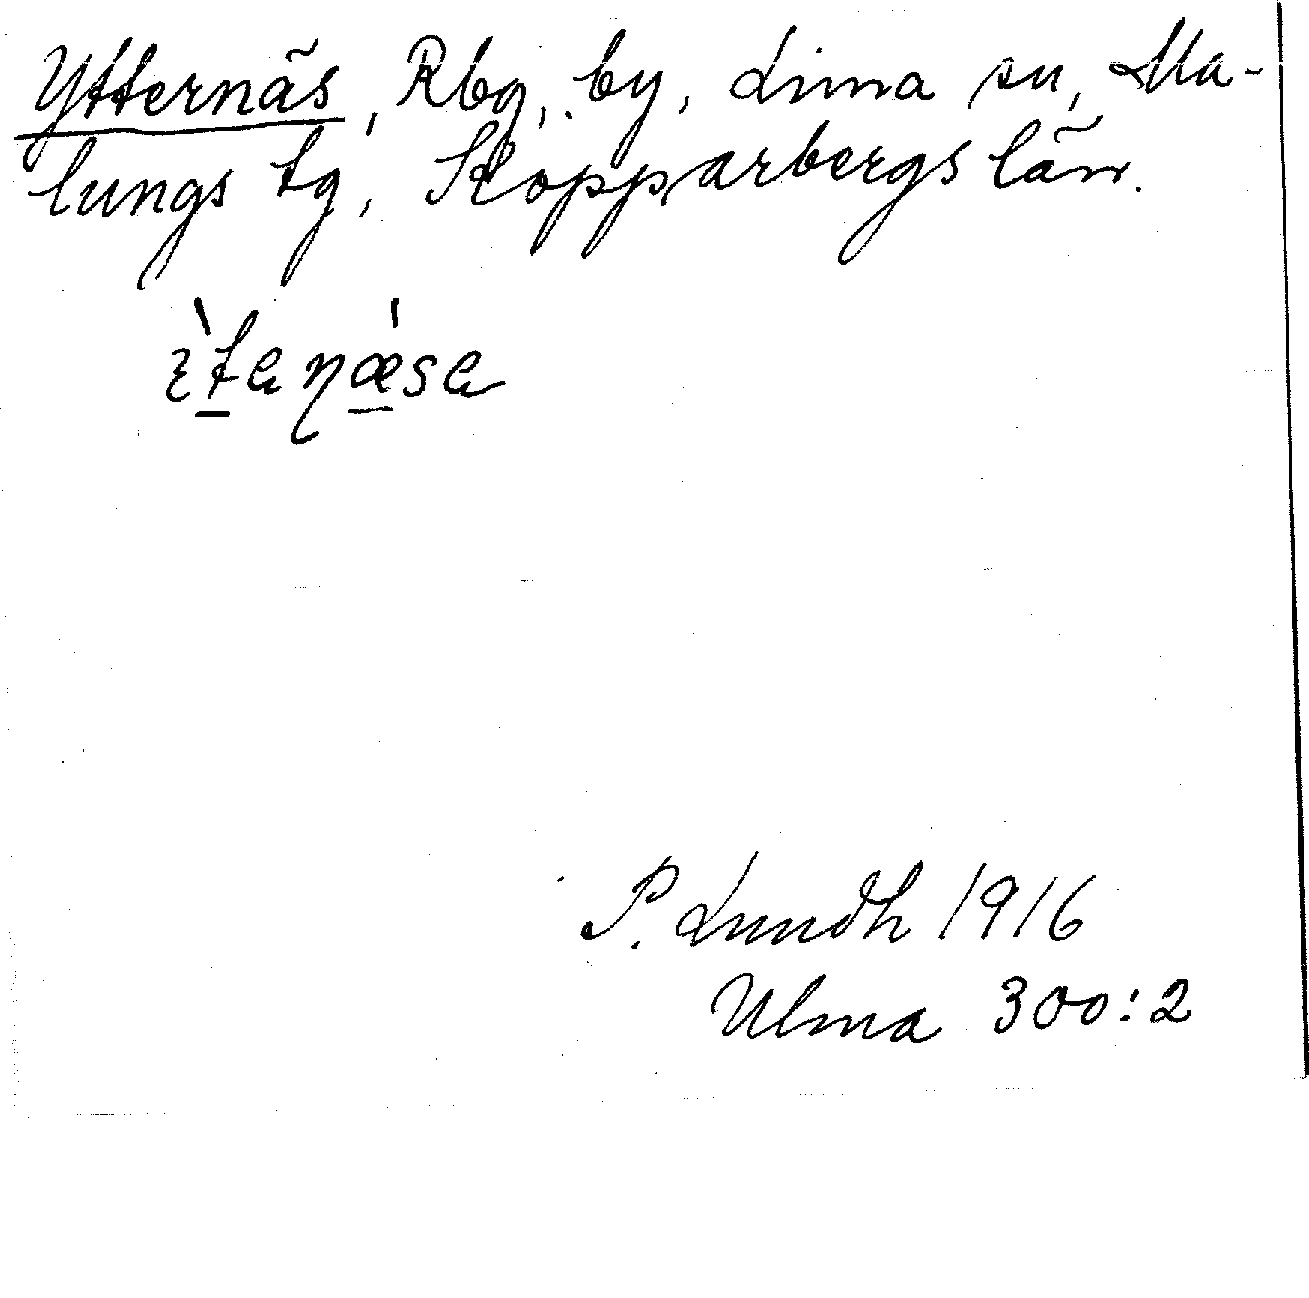 Ytternäs, Rbg, by, Lima sn, Ma-
lungs tg, Kopparbergs län.
P. Lundh 1916
Ulma 300:2